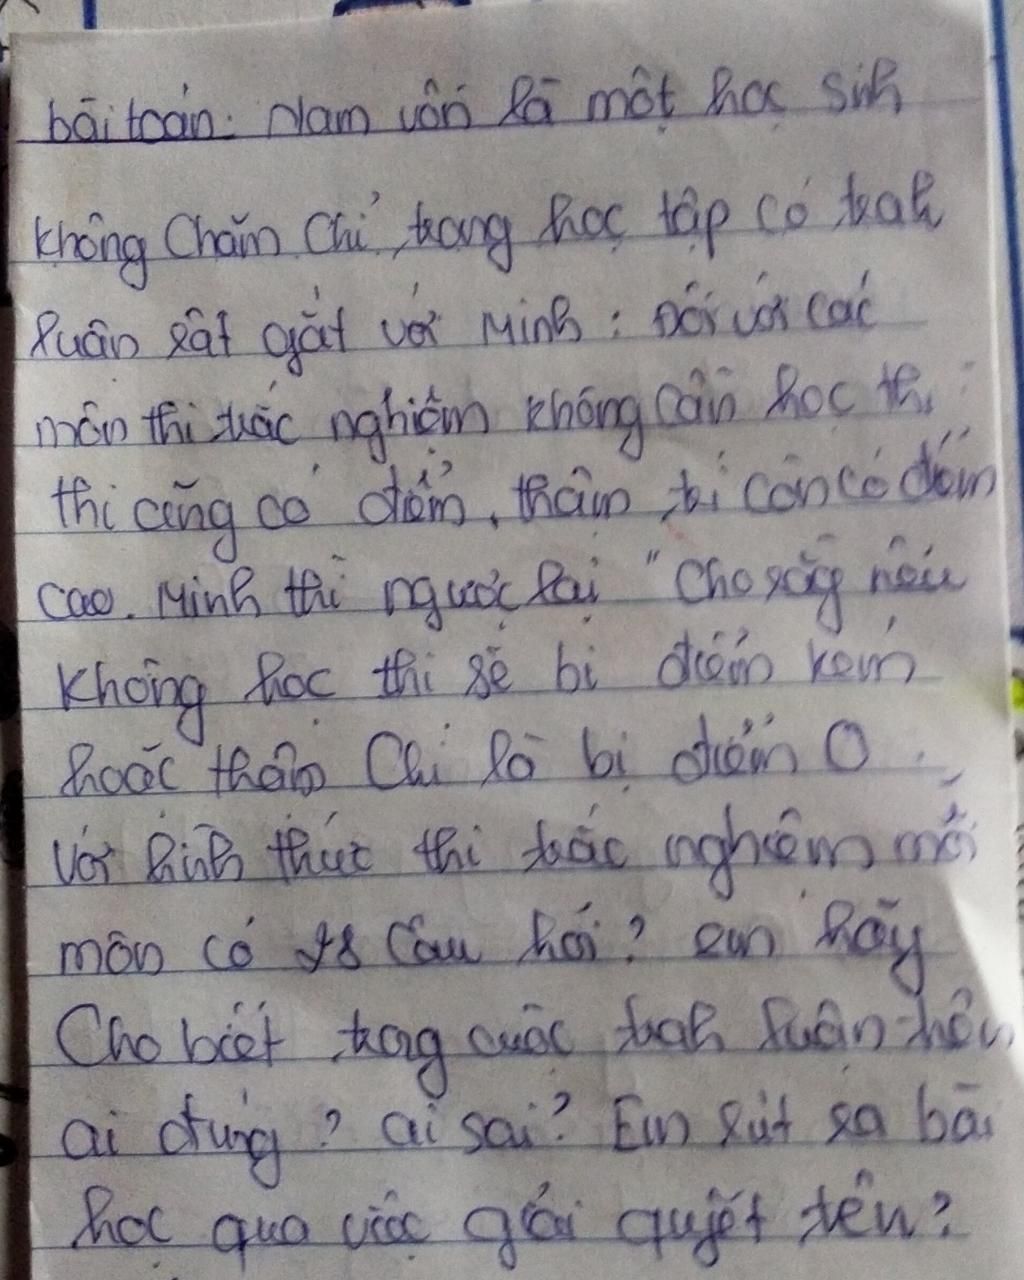 bài toán: Nam vốn là một học sinh
không chăm chỉ trong học tập có tranh
luận rất gắt với Minh: Đối với các
môn thi trắc nghiệm không cần học thì
thi cũng có điểm, thậm trí còn có điểm
cao. Minh thì ngược lại "cho rằng nếu
không học thi sẽ bị điểm kém
hoặc thậm chí là bị điểm 0,
với hình thức thi trắc nghiệm mỗi
môn có câu hỏi? em hãy
Cho biết trong cuộc tranh luận trên
ai đúng? ai sai? Em rút ra bài
học qua việc giải quyết trên?